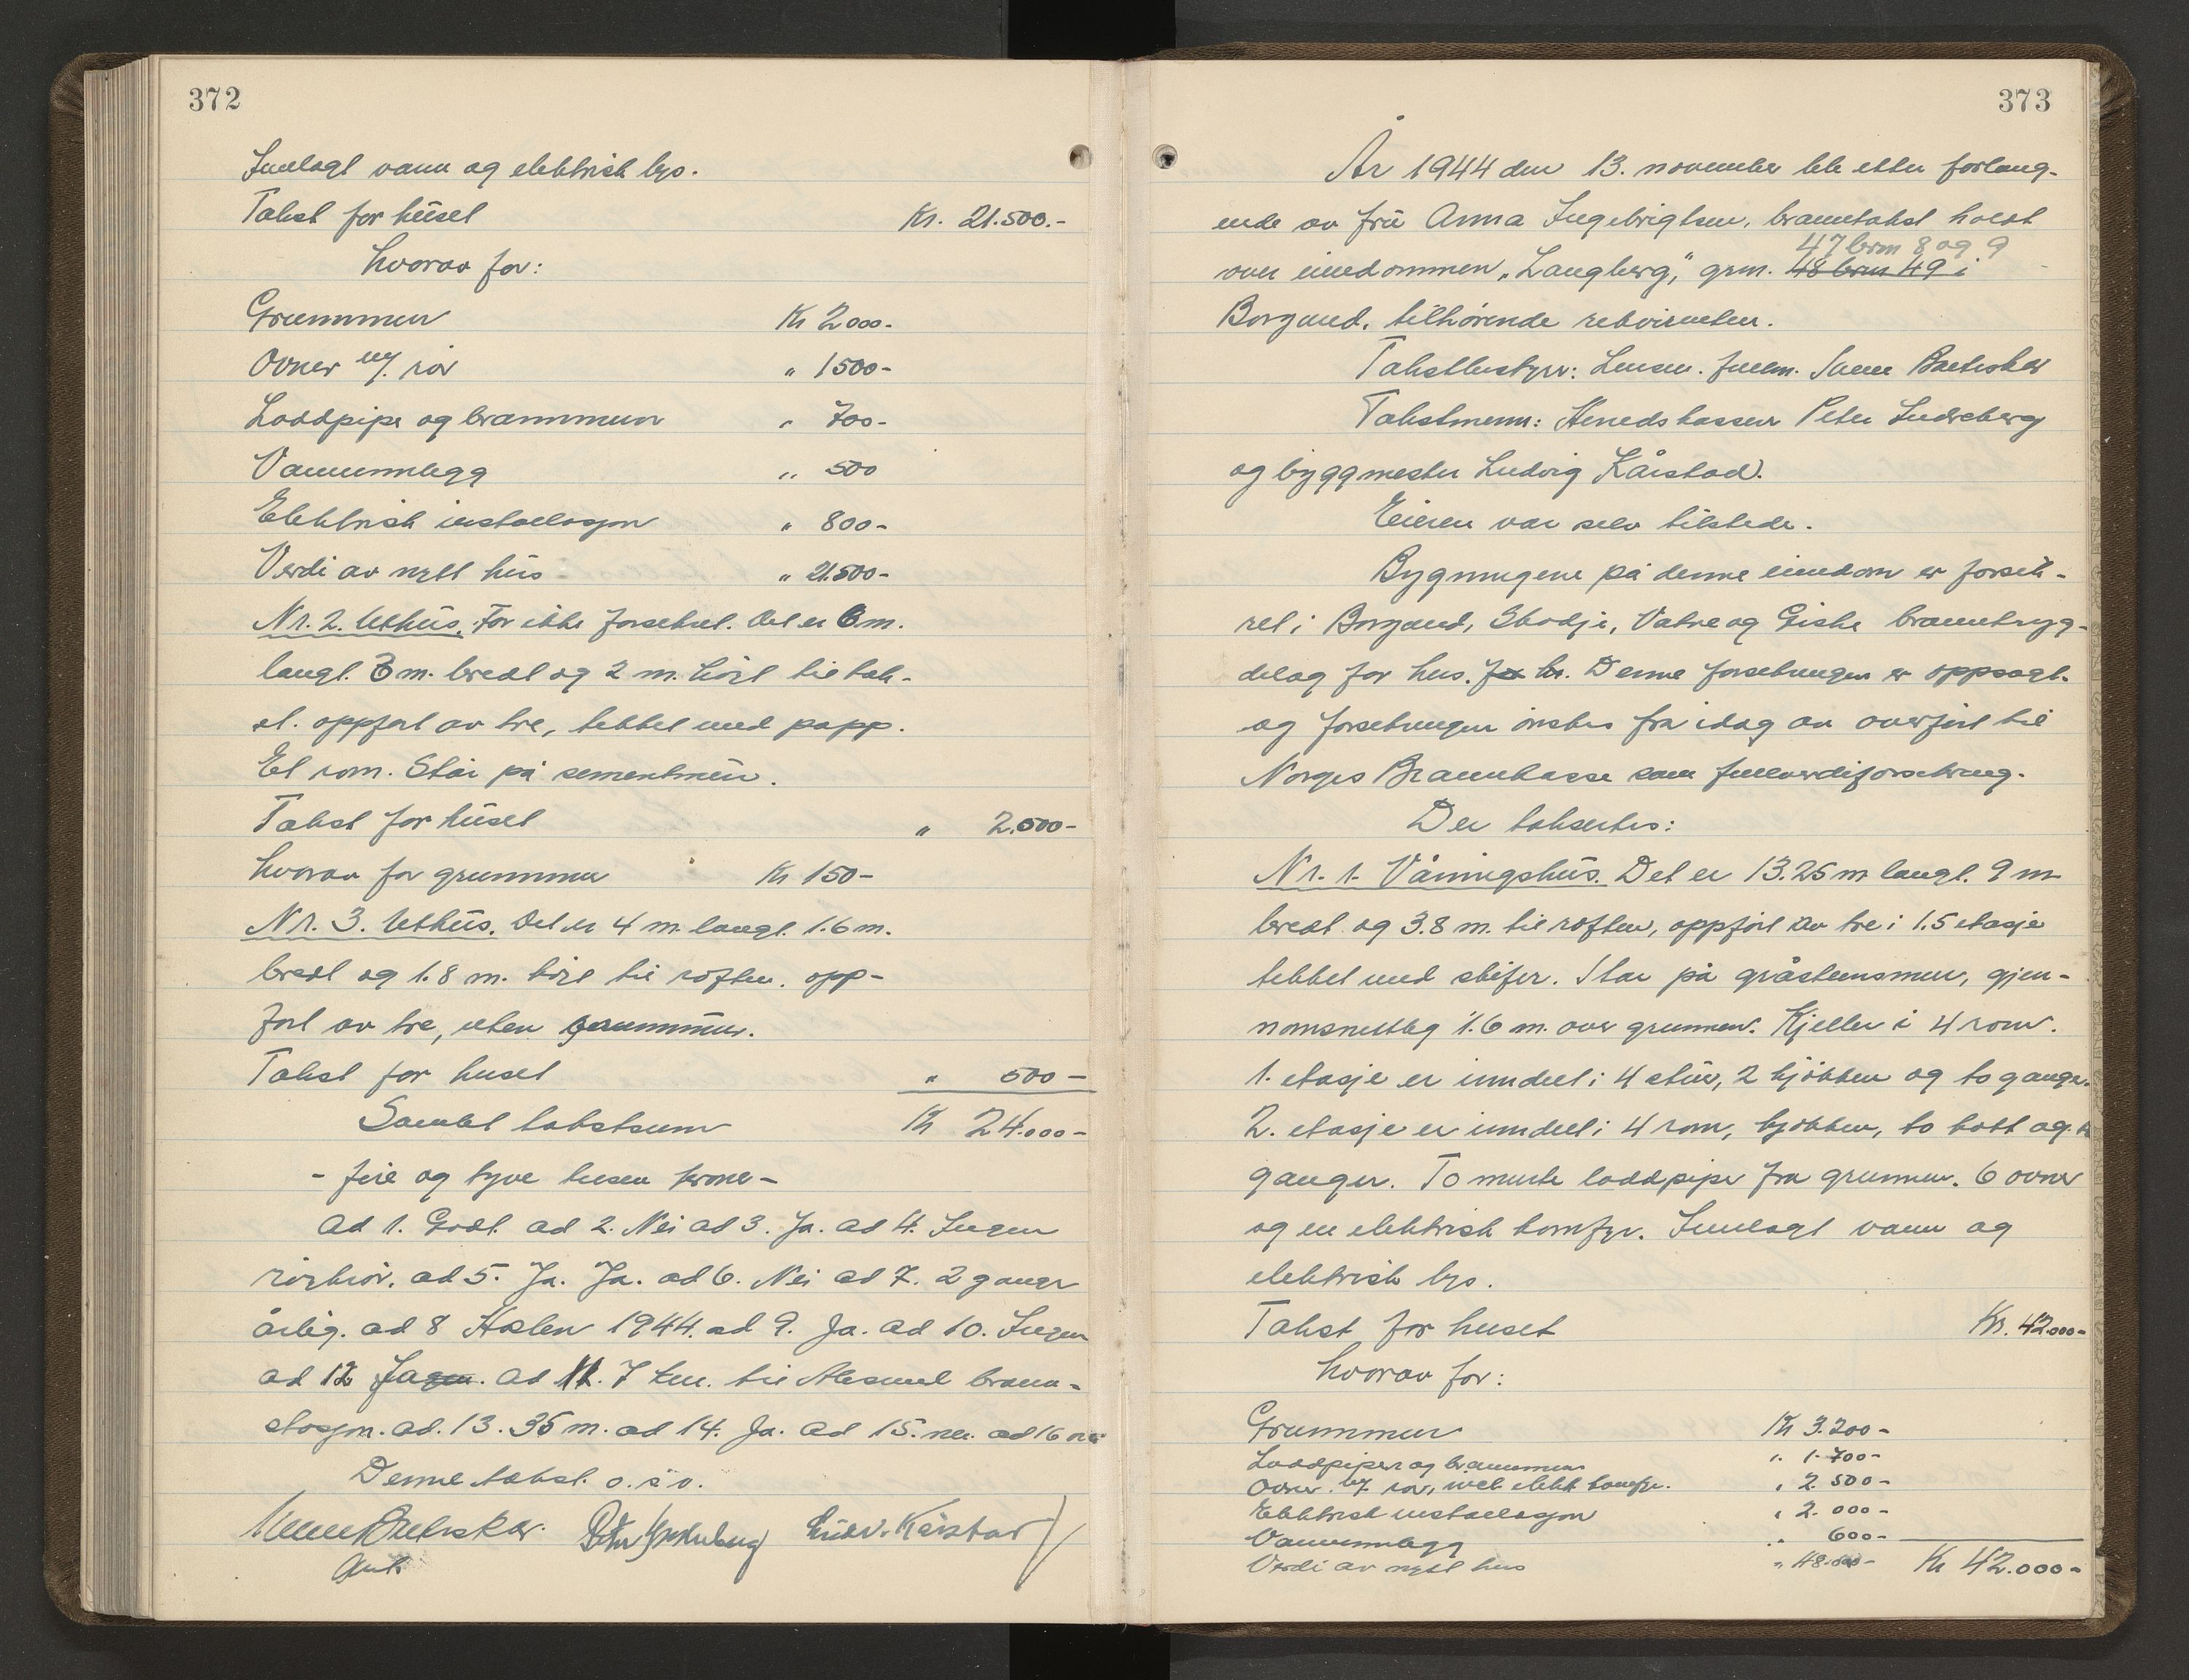 372
Innlagt vann og elektrisk lys.
Takst for huset Kr. 21.500.-
Hvorav for:
Grunnmur Kr 2000-
Ovner m/. rør " 1500-
Loddpipe og brannmur " 700-
Vanninnlegg " 500
Elektrisk installasjon " 800-
Verdi av nytt hus " 21.500-
Nr. 2. Uthus. Før ikke forsikret. Det er 6 m.
langt. 3 m. bredt og 2 m. høit til tak-
et. oppført av tre, tekket med papp.
Et rom. Står på sementmur.
Takst for huset " 2.000-
Hvorav for grunnmur Kr 150-
Nr. 3. Uthus. Det er 4 m. langt. 1.6 m.
bredt og 1.8 m. høit til røften. opp-
ført av tre, uten grunnmur.
Takst for huset " 500-
Samlet takstsum Kr 24.000-
- fire og tyve tusen kroner -
Ad 1. Godt. ad 2. Nei ad 3. Ja. ad 4. Ingen
ad 5. Ja. Ja. ad 6. Nei ad 7. 2 ganger
årlig. ad 8 Høsten 1944. ad 9. Ja. ad 10. Ingen
ad 12 Ja. ad 11. 7 km. til Ålesund brann-
stasjon. ad. 13. 35 m. ad 14. Ja. ad 15. nei. ad 16 nei
Denne takst. o. s. v.
Ludv. Kårstad
373
År 1944 den 13. november ble etter forlang-
ende av fru Anna Ingebrigtsen, branntakst holdt
47 brm 8 og 9
over eiendommen „Langberg," grm. 48 brm 49 i
Borgund, tilhørende rekvirenten.
Takstbestyrer: Lensm. fullm.
Takstmenn: Herredskasserer Peter Indreberg
og byggmester Ludvig Kårstad.
Eieren var selv tilstede.
Bygningene på denne eiendom er forsik-
ret i Borgund, Skodje, Vatne og Giske branntryg-
delag for hus. Denne forsikringen er oppsagt.
og forsikringen ønskes fra idag av overført til
Norges Brannkasse som fullverdiforsikring.
Der takseres:
Nr. 1. Våningshus. Det er 13.25 m langt. 9 m
bredt og 3.8 m. til røften, oppført av tre i 1.5 etasje
tekket med skifer. Står på gråsteinsmur, gjen-
nomsnittlig 1.6 m. over grunnen. Kjeller i 4 rom.
1. etasje er inndelt i 4 stuer, 2 kjøkken og to ganger.
2. etasje er inndelt i 4 rom, kjøkken, to kott og to
ganger. To murte loddpiper fra grunnen. 6 ovner
og en elektrisk komfyr. Innlagt vann og
elektrisk lys.
Takst for huset Kr. 42.000-
Hvorav for:
Grunnmur Kr 3.200-
Loddpiper og brannmur " 1.700-
Ovner m/ rør, inkl elekt komfyr. " 2.500-
Elektrisk installasjon " 2.000-
Vanninnlegg " 600-
Verdi av nytt hus " 48.000- Kr 42.000-